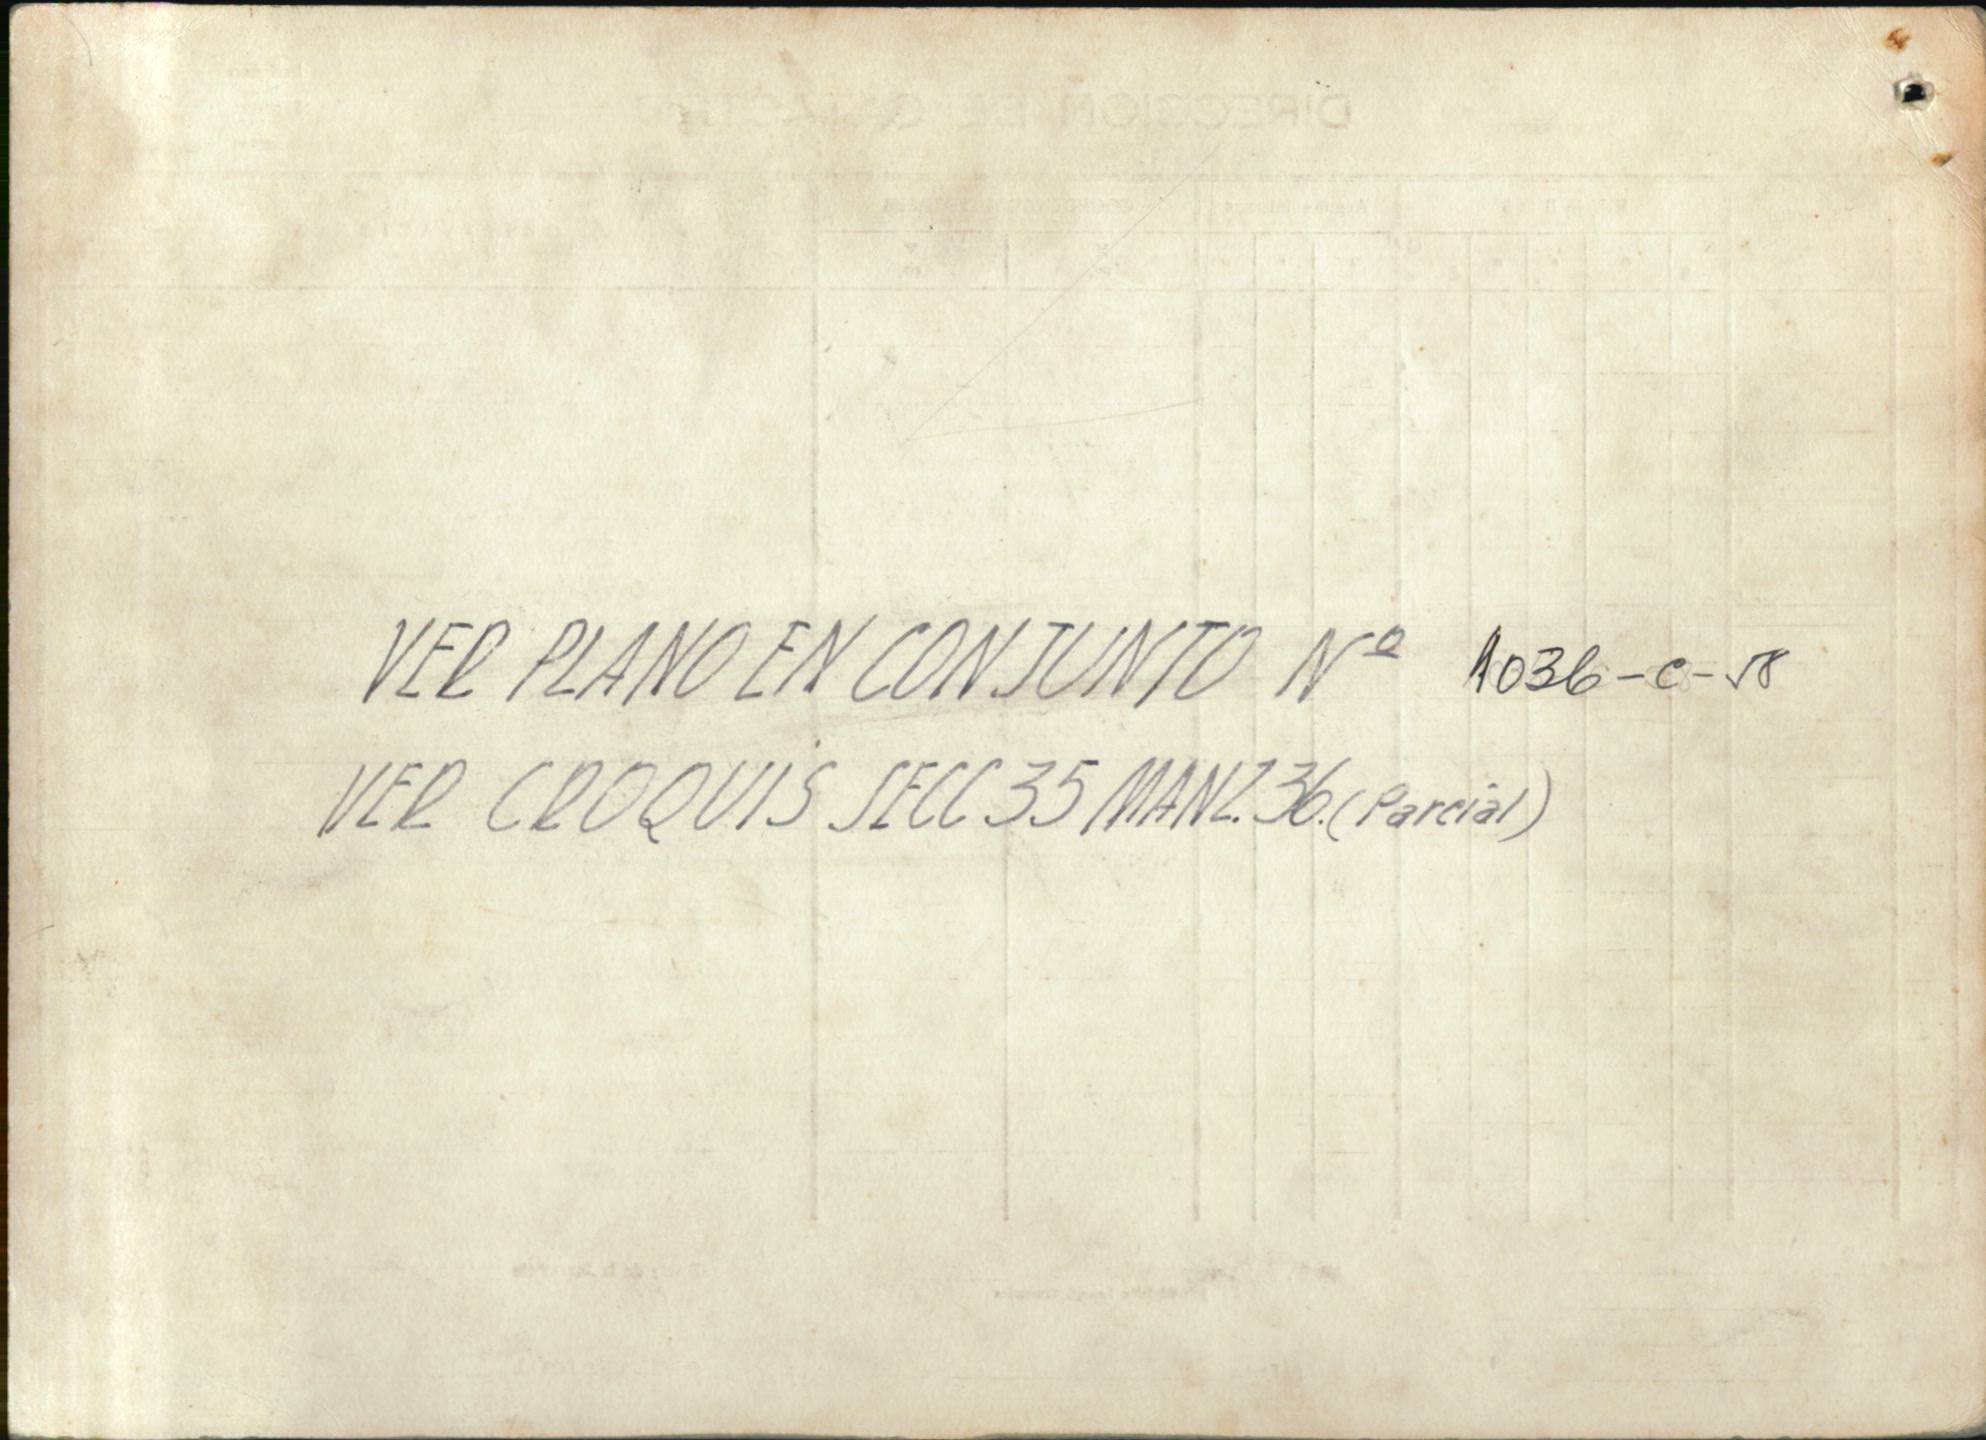 VER PLANO EN CONJUNTO Nº 1036-C-58
VER CROQUIS SECC 35 MANZ. 36. (Parcial)